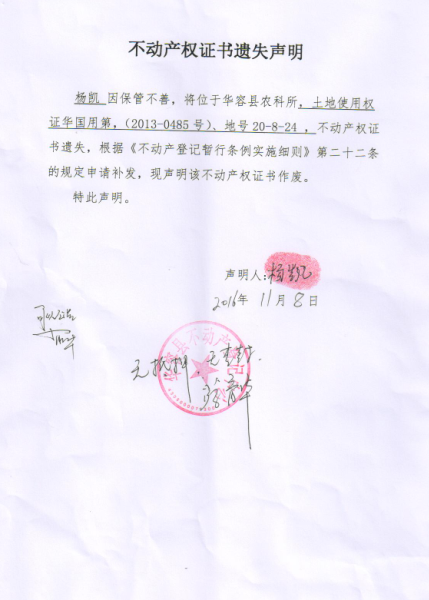 不动产权证书遗失声明
杨凯 因保管不善，将位于华容县农科所，土地使用权
证华国用第，（2013-0485 号）、地号 20-8-24 ，不动产权证
书遗失，根据《不动产登记暂行条例实施细则》第二十二条
的规定申请补发，现声明该不动产权证书作废。
特此声明。
声明人：杨凯
2016年 11月 8日
华容县不动产登记
无抵押．无查封．